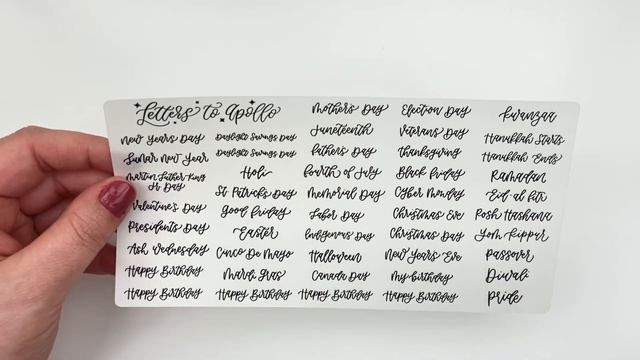 Letters to Apollo
New Years Day
Lunar New Year
Martin Luther King
Jr Day
Valentine's Day
Presidents Day
Ash Wednesday
Happy Birthday
Happy Birthday
Daylight Savings Day
Daylight Savings Day
Holi
St Patricks Day
Good Friday
Easter
Cinco De Mayo
Mardi Gras
Happy Birthday
Mother's Day
Juneteenth
Fathers Day
Fourth of July
Memorial Day
Labor Day
Indigenous Day
Halloween
Canada Day
Happy Birthday
Election Day
Veterans Day
Thanksgiving
Black Friday
Cyber Monday
Christmas Eve
Christmas Day
New Years Eve
My Birthday
Happy Birthday
Kwanzaa
Hanukkah Starts
Hanukkah Ends
Ramadan
Eid al fitr
Rosh Hashana
Yom Kippur
Passover
Diwali
Pride